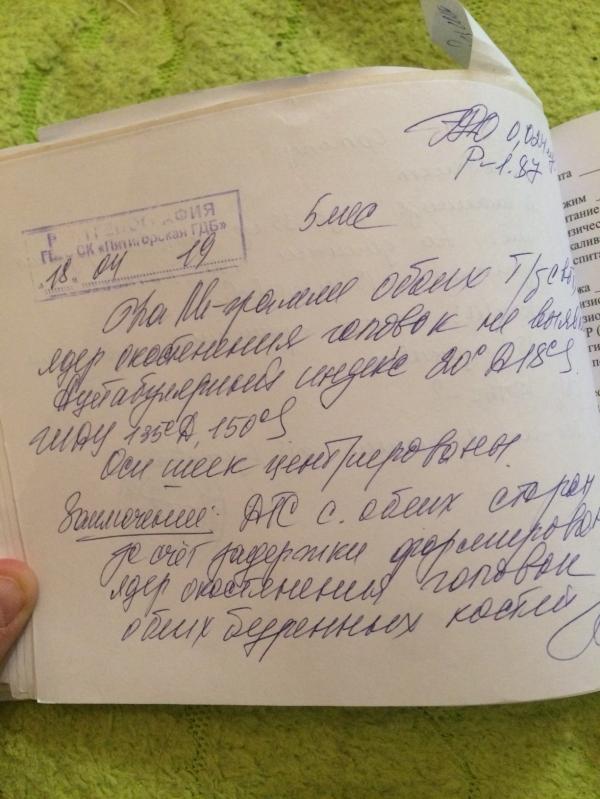 ЭЭО 0,04
Р-1.87
РЕНТГЕНОГРАФИЯ
ГБУЗ СК «Пятигорская ГДБ»
"18" 04 19
5 мес
На Rt-грамме обоих т/бедр
ядер окостенения головок не выявл
Ацетабулярный индекс 20° D 18° S.
ШДУ 135° D, 150° S
Оси шеек центрированы.
Заключение: ДТС с обеих сторон
за счёт задержки формирован
ядер окостенения головок
обеих бедренных костей